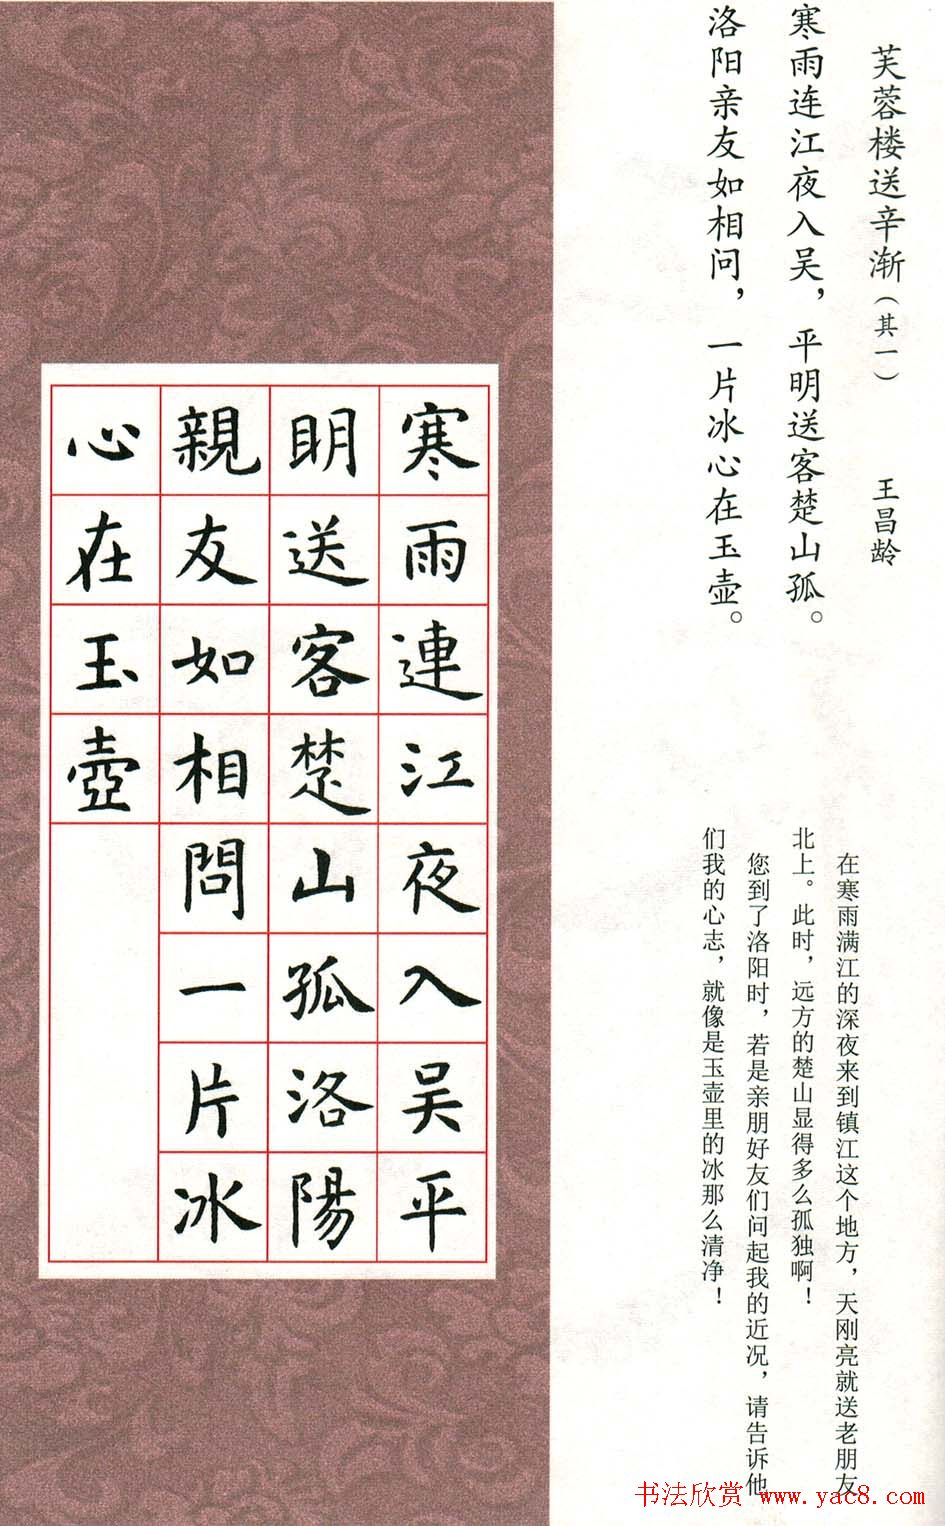 芙蓉楼送辛渐（其一） 王昌龄
寒雨连江夜入吴，平明送客楚山孤。
洛阳亲友如相问，一片冰心在玉壶。
在寒雨满江的深夜来到镇江这个地方，天刚亮就送老朋友
北上。此时，远方的楚山显得多么孤独啊！
您到了洛阳时，若是亲朋好友们问起我的近况，请告诉他
们我的心志，就像是玉壶里的冰那么清净！
寒雨連江夜入吴平
明送客楚山孤洛陽
親友如相問一片冰
心在玉壺
书法欣赏 www.yac8.com